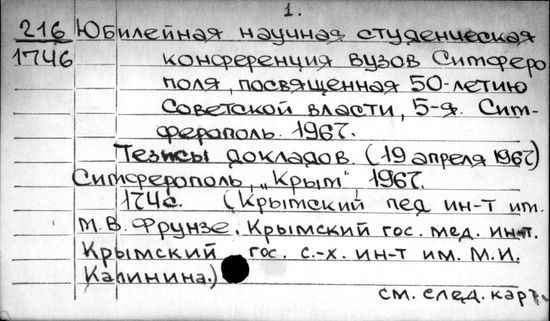 1.
216 Юбилейная научная студенческая
1746 конференция вузов Симферо
поля, посвященная 50-летию
Советской власти, 5-я. Сим-
ферополь. 1967.
Тезисы докладов. (19 апреля 1967)
Симферополь, „Крым", 1967.
174с. (Крымский пед ин-т им.
М.В. Фрунзе. Крымский гос. мед. ин-т.
Крымский гос. с.-х. ин-т им. М.И.
Калинина.)
см. след. карт.